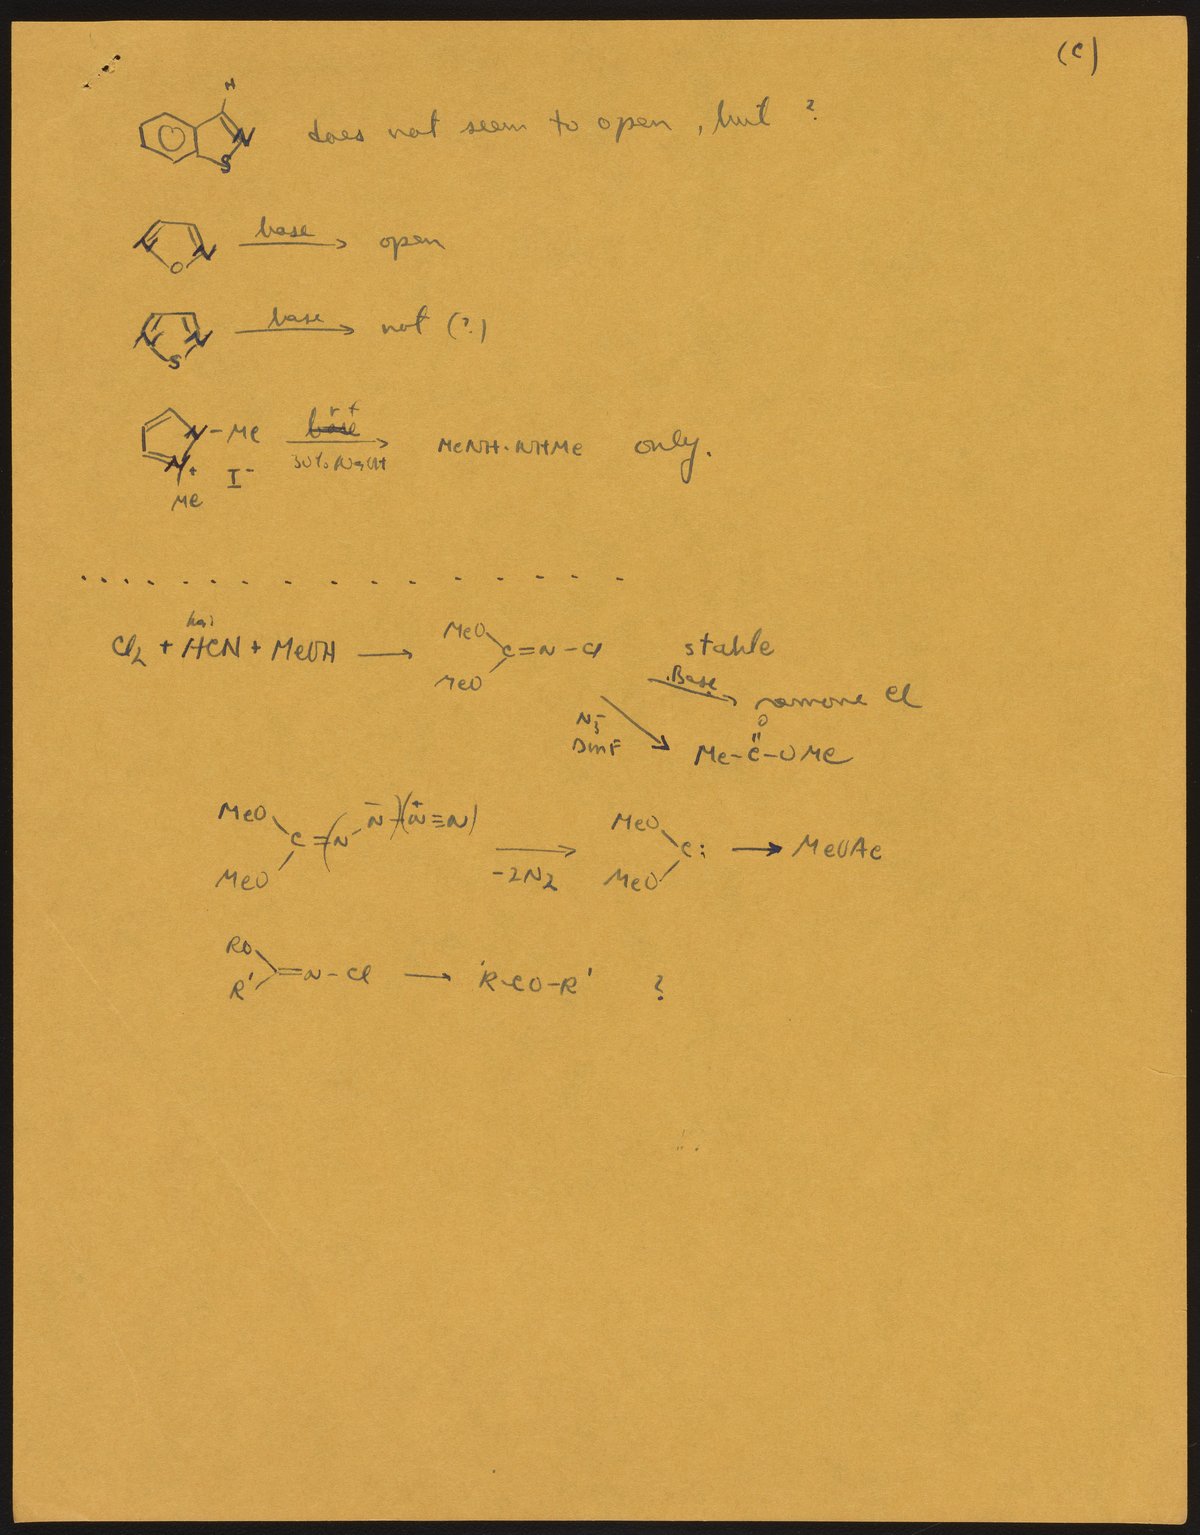 (c)
H
N
S
does not seem to open, but ?
N
N
O
base
open
N
N
S
base
not (?)
N - Me
N +
Me
I -
30% NaOH
MeNH · NHMe only.
Cl2 + HCN + MeOH →
MeO
MeO
C = N - Cl
stable
Base
remove Cl
N3-
DMF
O
Me - C - OMe
MeO
MeO
C = N
N - + N ≡ N
-2N2
MeO
MeO
C: → MeOAc
RO
R'
= N - Cl → R-CO-R' ?